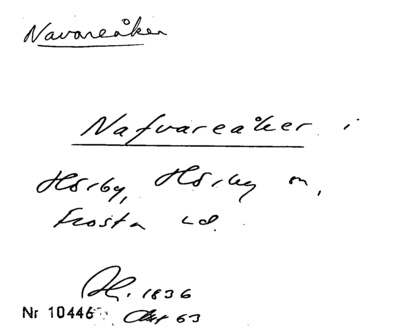 Navareåker
Nafvareåker i
Hörby, Hörby sn,
Frosta hd.
1836
Nr 10446 Akt 63